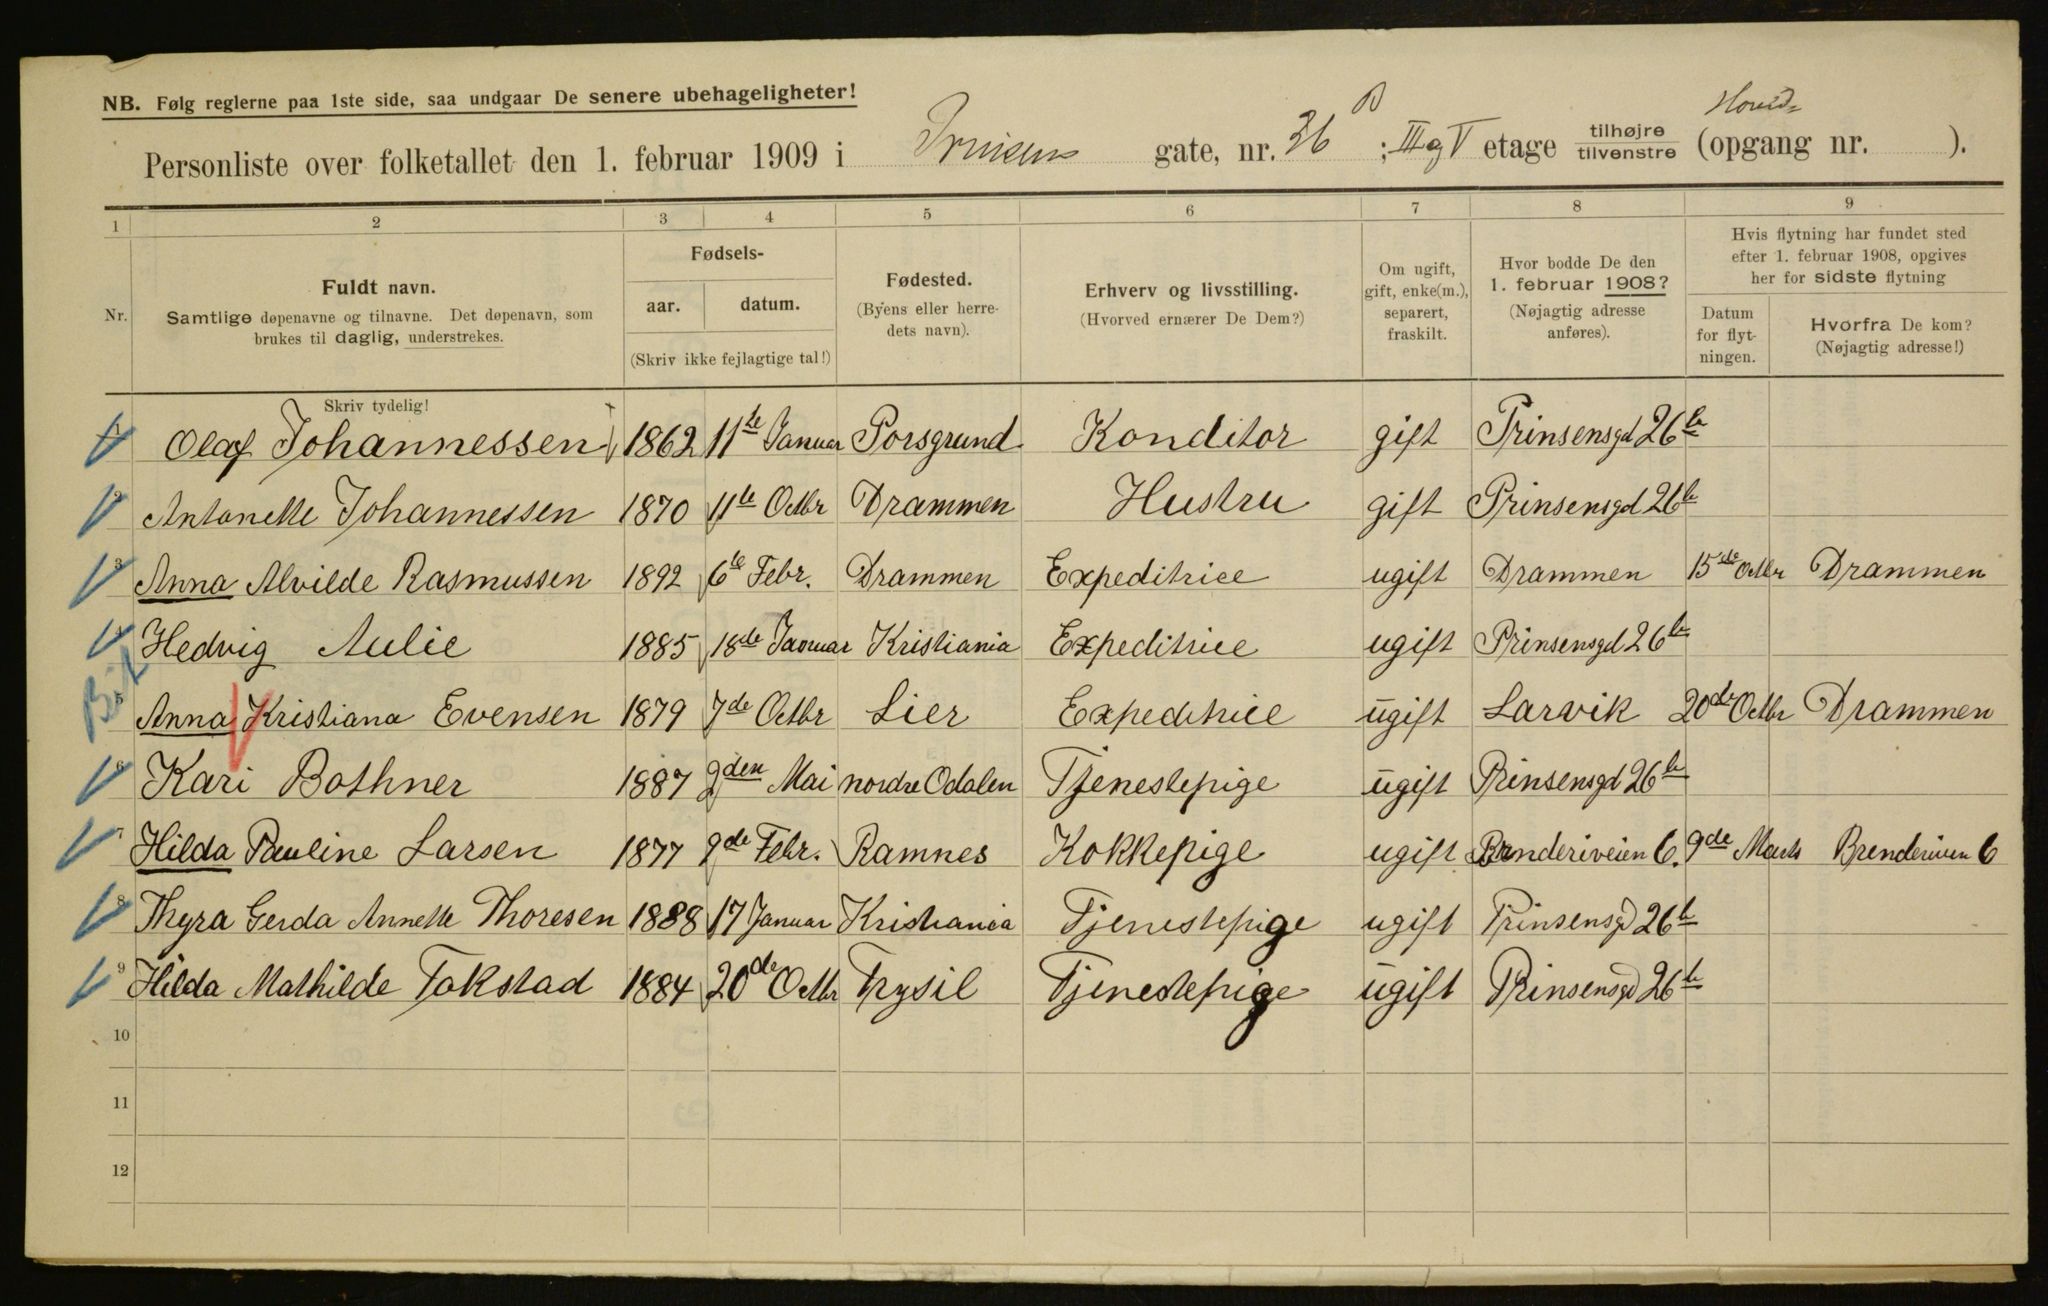 NB. Følg reglerne paa 1ste side, saa undgaar De senere ubehageligheter!
Personliste over folketallet den 1. februar 1909 i Prinsens gate, nr. 26 B ; III og V etage tilhøjre tilvenstre (opgang nr. Hoved= ).
1 2 3 4 5 6 7 8 9
Nr.
Fuldt navn.
Samtlige døpenavne og tilnavne. Det døpenavn, som
brukes til daglig, understrekes.
Fødsels-
aar. datum.
(Skriv ikke fejlagtige tal!)
Fødested.
(Byens eller herre-
dets navn).
Erhverv og livsstilling.
(Hvorved ernærer De Dem?)
Om ugift,
gift, enke(m.),
separert,
fraskilt.
Hvor bodde De den
1. februar 1908?
(Nøjagtig adresse
anføres).
Hvis flytning har fundet sted
efter 1. februar 1908, opgives
her for sidste flytning
Datum
for flyt-
ningen.
Hvorfra De kom?
(Nøjagtig adresse!)
Skriv tydelig!
1 Olaf Johannessen 1862 11te Januar Porsgrund Konditor gift Prinsensgd 26b
2 Antonette Johannessen 1870 11te Octbr Drammen Hustru gift Prinsensgd 26b
3 Anna Alvilde Rasmussen 1892 6te Febr. Drammen Expeditrice ugift Drammen 15de Octbr Drammen
4 Hedvig Aulie 1885 18de Januar Kristiania Expeditrice ugift Prinsensgd 26b
5 Anna Kristiana Evensen 1879 7de Octbr Lier Expeditrice ugift Larvik 20de Octbr Drammen
6 Kari Bothner 1887 2den Mai nordre Odalen Tjenestepige ugift Prinsensgd 26b
7 Hilda Pauline Larsen 1877 2de Febr. Ramnes Kokkepige ugift Brenderiveien 6. 9de Marts Brenderiveien 6
8 Thyra Gerda Annette Thoresen 1888 17 Januar Kristiania Tjenestepige ugift Prinsensgd 26b
9 Hilda Mathilde Fakstad 1884 20de Octbr Trysil Tjenestepige ugift Prinsensgd 26b
10
11
12